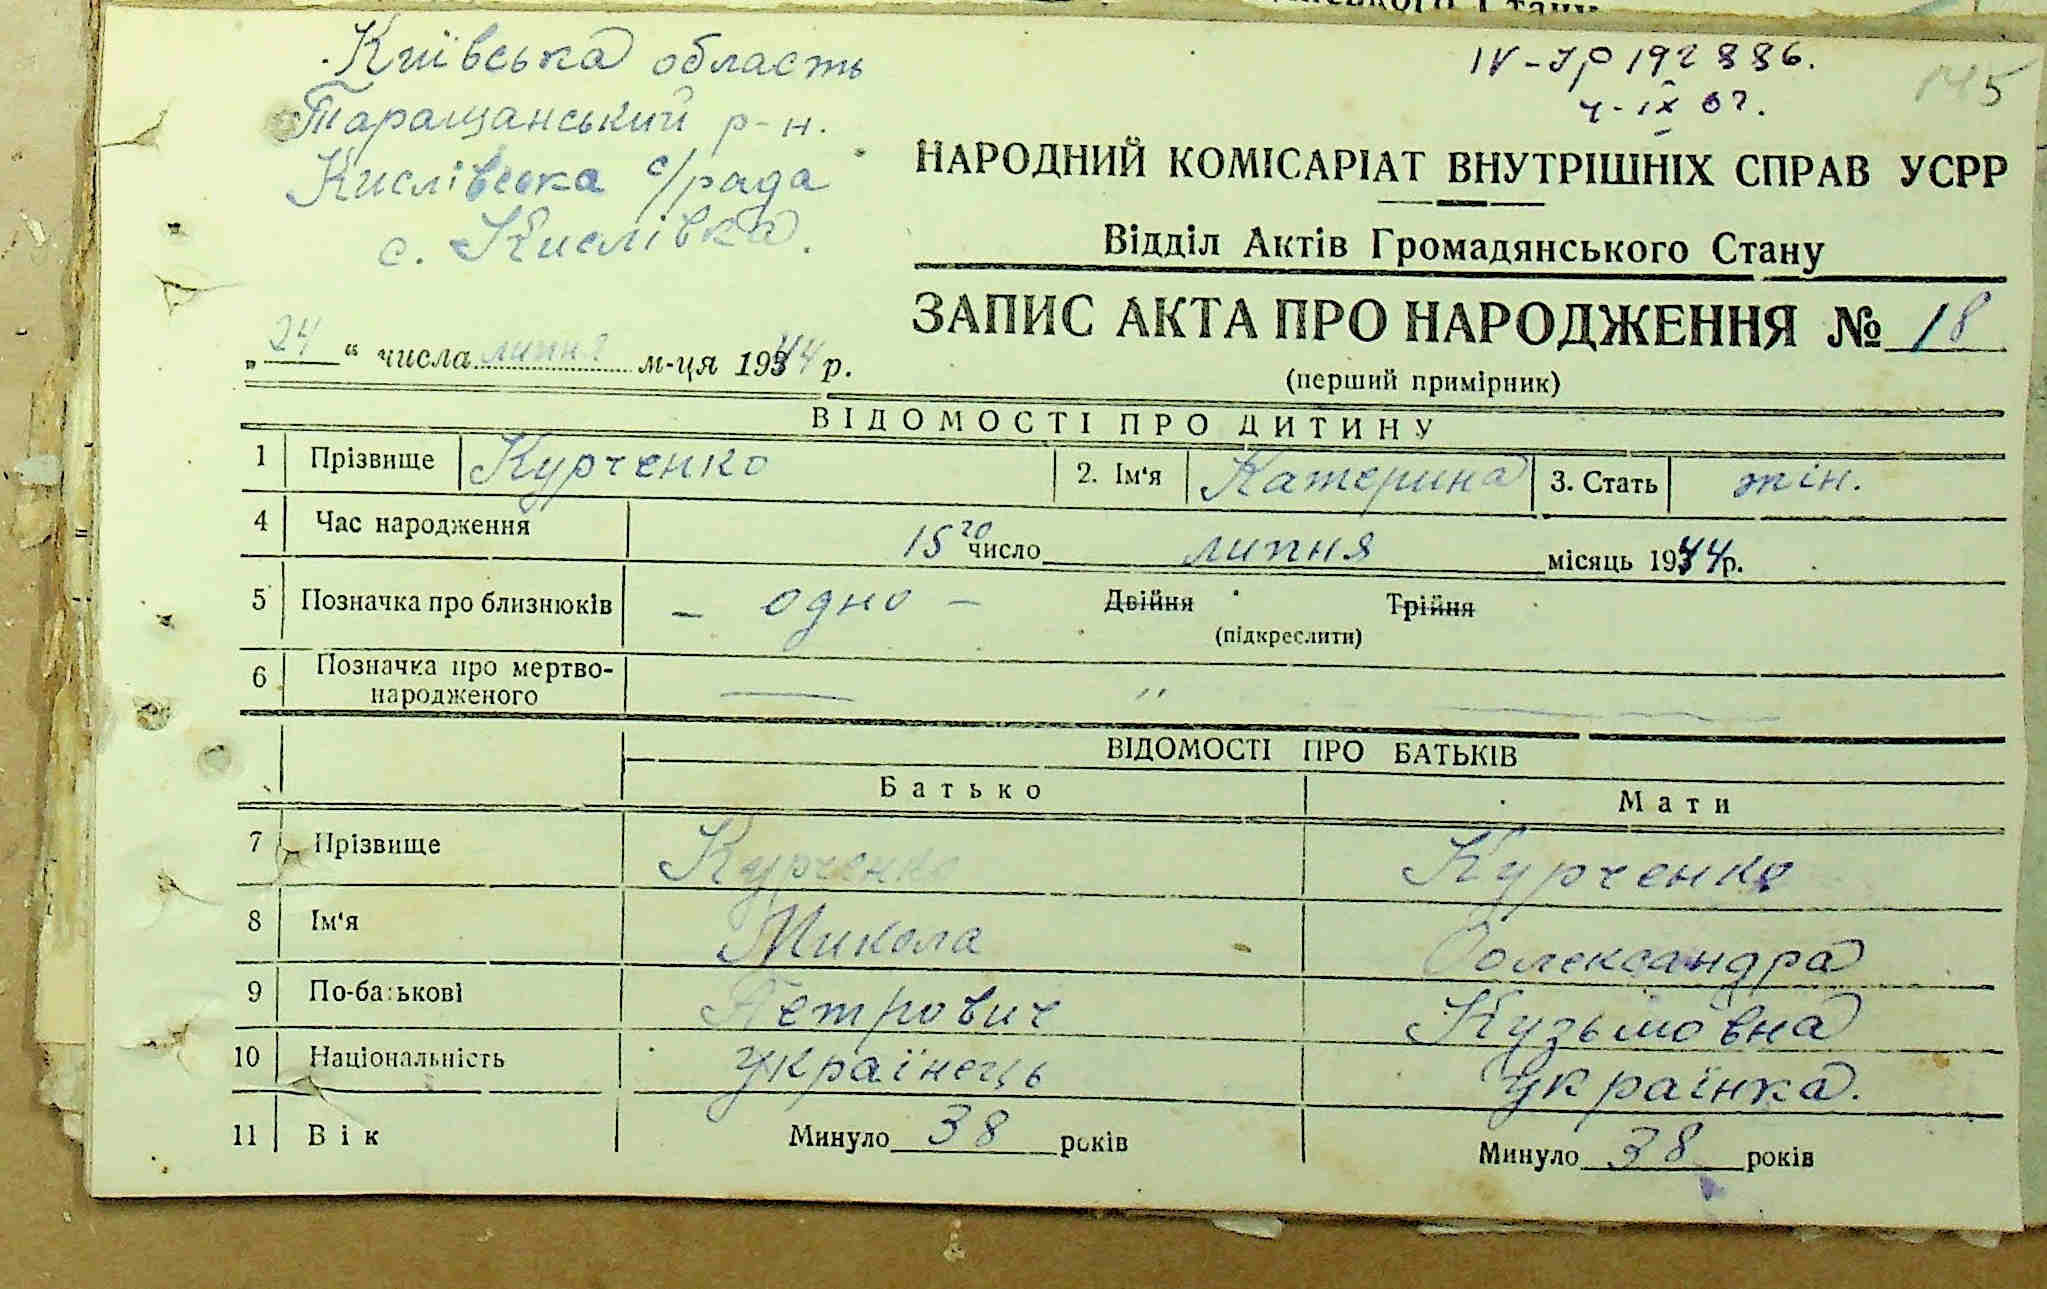 Київська область
Таращанський р-н.
Кислівська с/рада
с. Кислівка.
IV-ЗР 192886.
4-IX 67.
145
НАРОДНИЙ КОМІСАРІАТ ВНУТРІШНІХ СПРАВ УСРР
Відділ Актів Громадянського Стану
ЗАПИС АКТА ПРО НАРОДЖЕННЯ № 18
(перший примірник)
„ 24 “ числа липня м-ця 1944 р.
ВІДОМОСТІ ПРО ДИТИНУ
1 Прізвище Курченко 2. Ім'я Катерина 3. Стать жін.
4 Час народження 15го число липня місяць 1944 р.
5 Позначка про близнюків – одно – Двійня Трійня
(підкреслити)
6 Позначка про мертво-
народженого — " —
ВІДОМОСТІ ПРО БАТЬКІВ
Батько Мати
7 Прізвище Курченко Курченко
8 Ім'я Микола Олександра
9 По-батькові Петрович Кузьмовна
10 Національність українець українка.
11 Вік Минуло 38 років Минуло 38 років